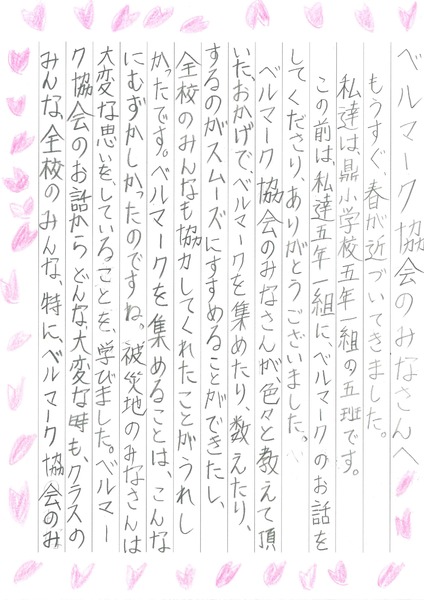 ベルマーク協会のみなさんへ
もうすぐ、春が近づいてきました。
私達は、鼎小学校五年一組の五班です。
この前は、私達五年一組に、ベルマークのお話を
してくださり、ありがとうございました。
ベルマーク協会のみなさんが色々と教えて頂
いたおかげで、ベルマークを集めたり、数えたり、
するのがスムーズにすすめることができたし、
全校のみんなも協力してくれたことがうれし
かったです。ベルマークを集めることは、こんな
にむずかしかったのですね。被災地のみなさんは
大変な思いをしていることを、学びました。ベルマー
ク協会のお話から どんな大変な時も、クラスの
みんな、全校のみんな、特に、ベルマーク協会のみ